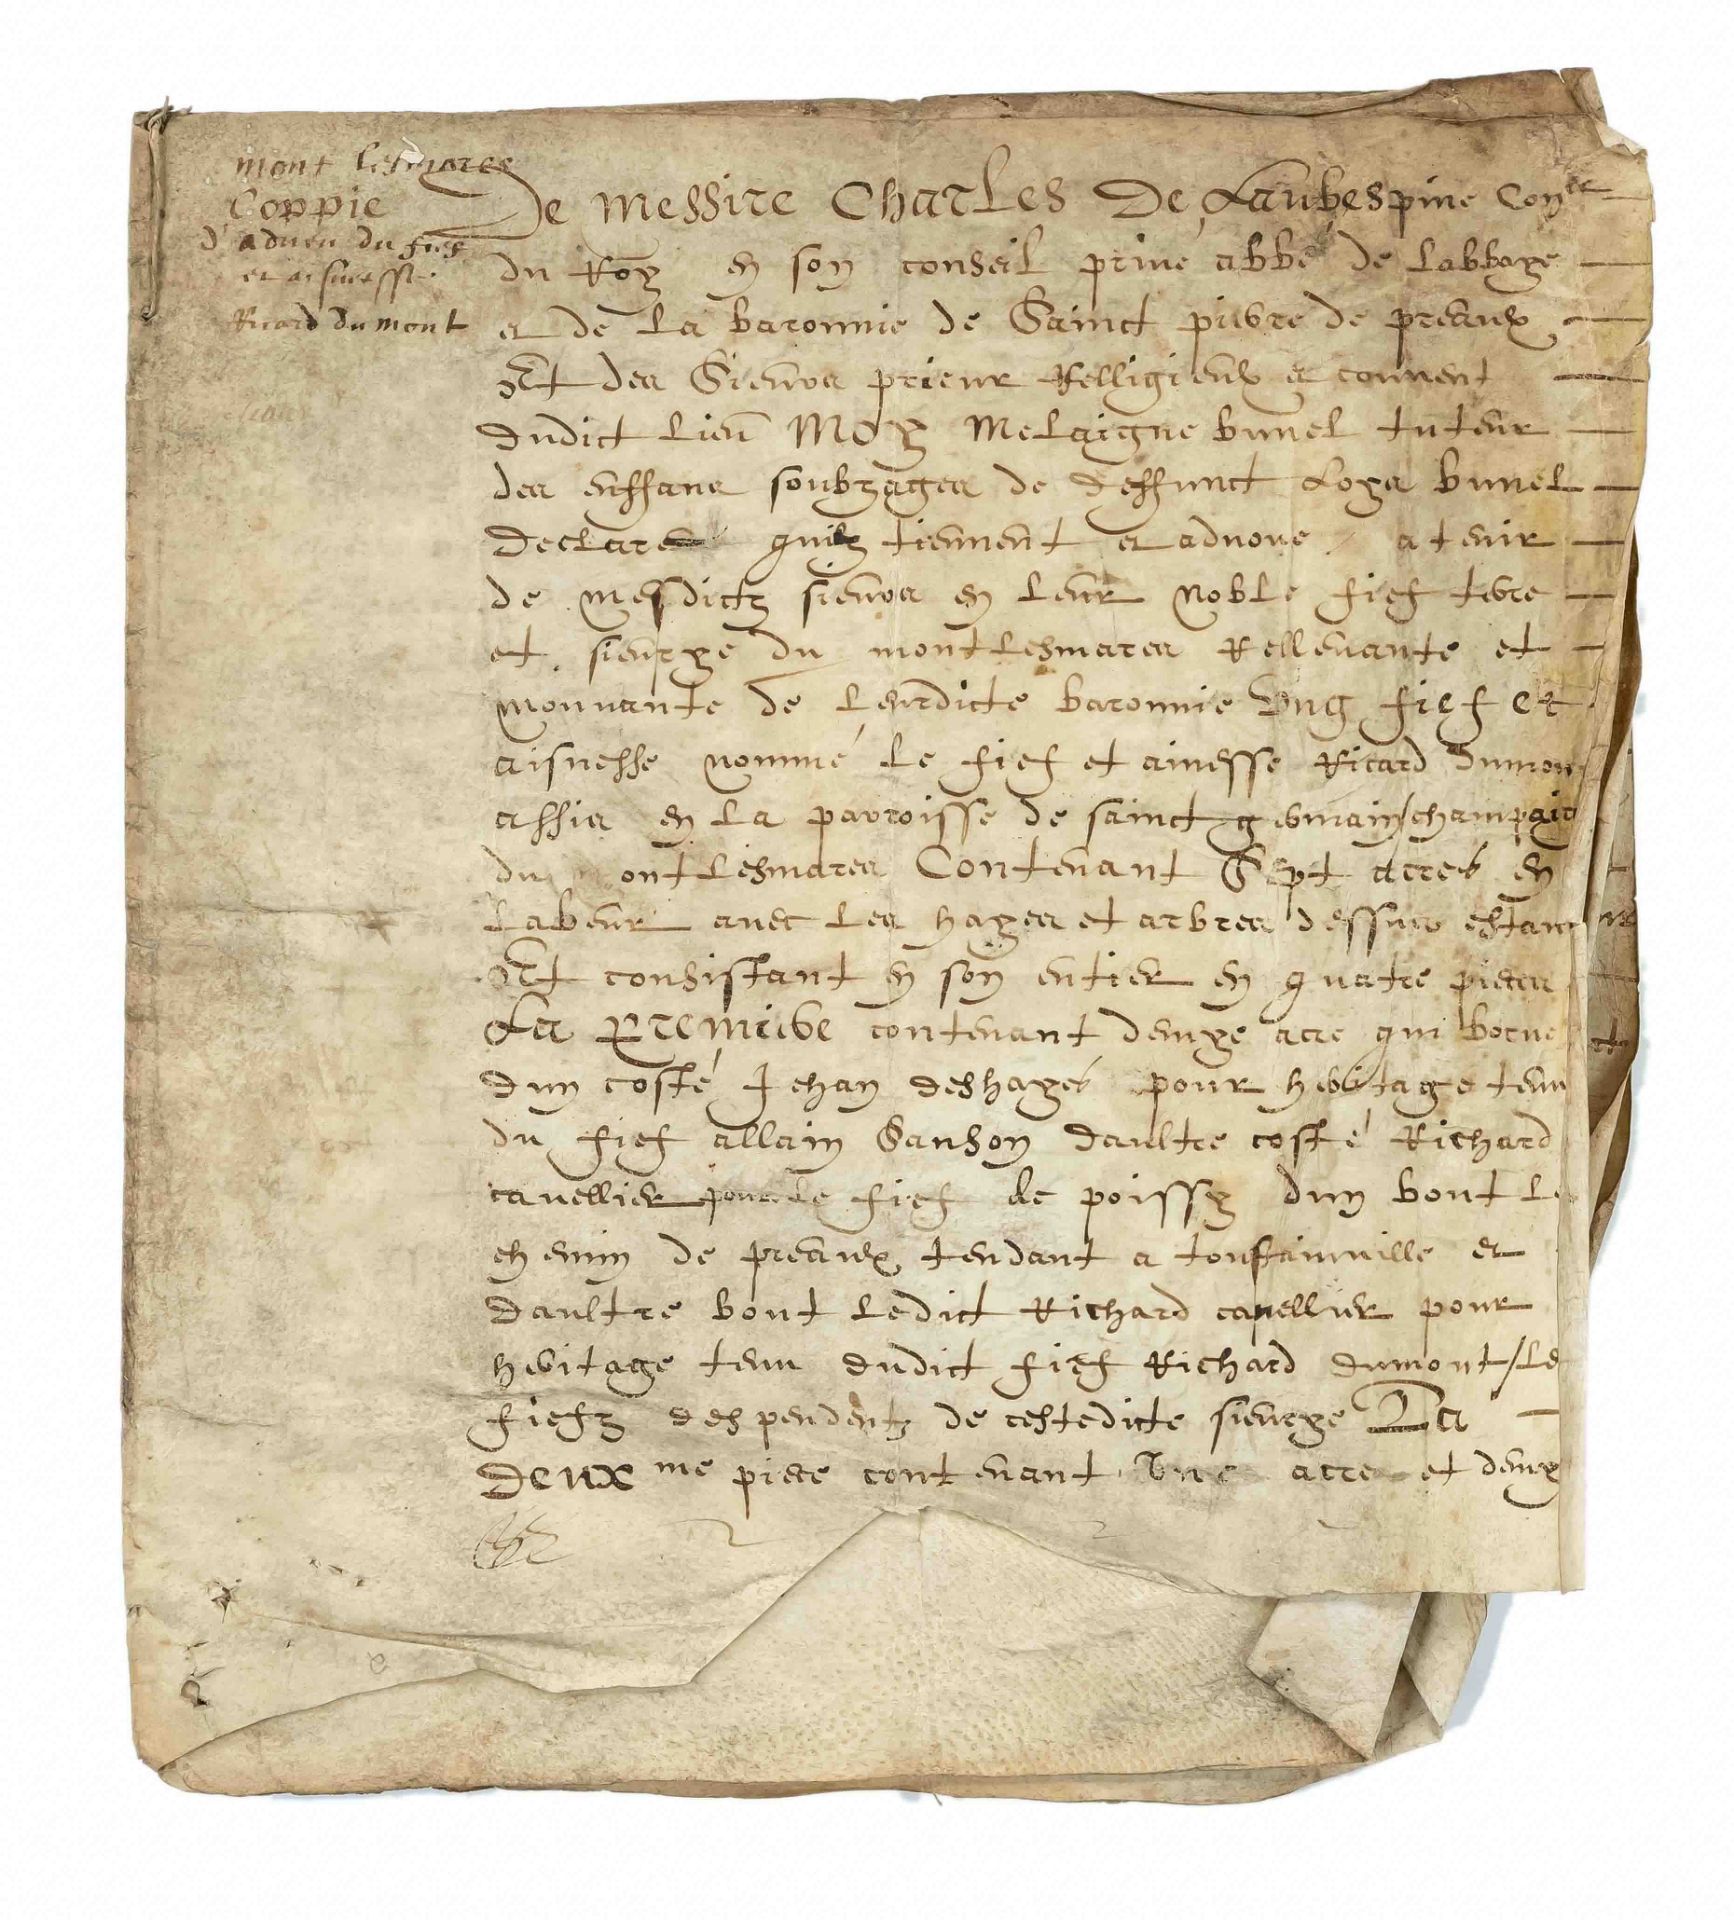 mont lesmares
Coppie
d'adveu du fief
et aisnesse
Ricard dumont
De Messire Charles De Laubespine Con.er
du Roy en son conseil privé abbé de labbaye
et de la baronnie de Sainct pierre de preaux
Et des Sieurs prieur Relligieux et couvent
dudict lieu Moy Melaigne bunel tuteur
des enffans soubzages de deffunct Loys bunel
declare quilz tiennent et advoue a tenir
de mesdictz sieurs en leur noble fief terre
et sieurye du montlesmares Rellevante et
mouvante de leurdicte baronnie Ung fief et
aisnesse nommé le fief et ainesse Ricard dumon
assis en la parroisse de sainct germain/champaig
du ontlesmares Contenant Sept acres en
labeur avec les hayes et arbres dessus estan
Et consistant en son entier en quatre pieces
La Premiere contenant demye acre qui borne
dun costé Jehan deshayes pour heritage tenu
du fief allain Sanson daultre costé Richard
cavellier pour le fief de poissy dun bout le
chemin de preaux tendant a toustainville et
daultre bout ledict Richard cavellier pour
heritage tenu dudict fief Richard dumont/le
fiefz despendentz de cestedicte sieurye La
deuxme piece contenant Une acre et demy